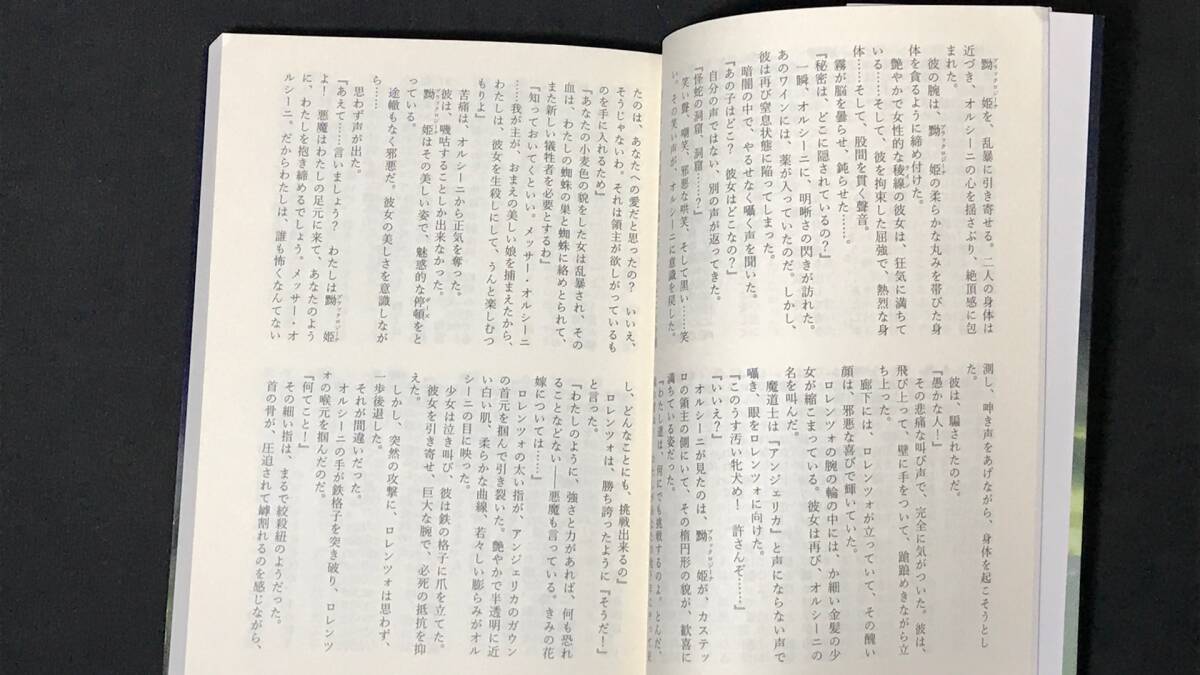 黝姫を、乱暴に引き寄せる。二人の身体は
近づき、オルシーニの心を揺さぶり、絶頂感に包
まれた。
彼の腕は、黝姫の柔らかな丸みを帯びた身
体を貪るように締め付けた。
艶やかで女性的な稜線の彼女は、狂気に満ちて
いる……そして、彼を拘束した屈強で、熱烈な身
体……そして、股間を貫く聲音。
霧が脳を曇らせ、鈍らせた……。
『秘密は、どこに隠されているの?』
一瞬、オルシーニに、明晰さの閃きが訪れた。
あのワインには、薬が入っていたのだ。しかし、
彼は再び窒息状態に陥ってしまった。
暗闇の中で、やるせなく囁く声を聞いた。
『あの子はどこ? 彼女はどこなの?』
自分の声ではない、別の声が返ってきた。
『怪蛇の洞窟、洞窟……?』
笑い聲、嘲笑、邪悪な哄笑、そして黒い……笑
い。その笑い声が、オルシーニに意識を戻した。
測し、呻き声をあげながら、身体を起こそうとし
た。
彼は、騙されたのだ。
『愚かな人!』
その悲痛な叫び声で、完全に気がついた。彼は、
飛び上って、壁に手をついて、踉踉めきながら立
ち上った。
廊下には、ロレンツォが立っていて、その醜い
顔は、邪悪な喜びで輝いていた。
ロレンツォの腕の輪の中には、か細い金髪の少
女が縮こまっている。彼女は再び、オルシーニの
名を叫んだ。
魔道士は『アンジェリカ』と声にならない声で
囁き、眼をロレンツォに向けた。
『このうす汚い牝犬め! 許さんぞ……』
『いいえ?』
オルシーニが見たのは、黝姫が、カステッ
ロの領主の側にいて、その楕円形の貌が、歓喜に
満ちている姿だった。
『わたし達は、何にでも挑戦するのよ。とんだ、
たのは、あなたへの愛だと思ったの? いいえ、
そうじゃないわ。それは領主が欲しがっているも
のを手に入れるため』
『あなたの小麦色の貌をした女は乱暴され、その
血は、わたしの蜘蛛の巣と蜘蛛に絡めとられて、
また新しい犠牲者を必要とするわ』
『知っておいてくといい。メッサー・オルシーニ
……我が主が、おまえの美しい娘を捕まえたから、
わたしは、彼女を生殺しにして、うんと楽しむつ
もりよ』
苦痛は、オルシーニから正気を奪った。
彼は、嘰咕することしか出来なかった。
黝姫はその美しい姿で、魅惑的な停頓をと
っている。
途轍もなく邪悪だ。彼女の美しさを意識しなが
ら……。
思わず声が出た。
『あえて……言いましょう? わたしは黝姫
よ! 悪魔はわたしの足元に来て、あなたのよう
に、わたしを抱き締めるでしょう。メッサー・オ
ルシーニ。だからわたしは、誰も怖くなんてない
し、どんなことにも、挑戦出来るの』
ロレンツォは、勝ち誇ったように『そうだ!』
と言った。
『わたしのように、強さと力があれば、何も恐れ
ることなどない――悪魔も言っている。きみの花
嫁については……』
ロレンツォの太い指が、アンジェリカのガウン
の首元を掴んで引き裂いた。艶やかで半透明に近
い白い肌、柔らかな曲線、若々しい膨らみがオル
シーニの目に映った。
少女は泣き叫び、彼は鉄の格子に爪を立てた。
彼女を引き寄せ、巨大な腕で、必死の抵抗を抑
えた。
しかし、突然の攻撃に、ロレンツォは思わず、
一歩後退した。
それが間違いだった。
オルシーニの手が鉄格子を突き破り、ロレンツ
ォの喉元を掴んだのだ。
『何てこと!』
その細い指は、まるで絞殺紐のようだった。
首の骨が、圧迫されて罅割れるのを感じながら、